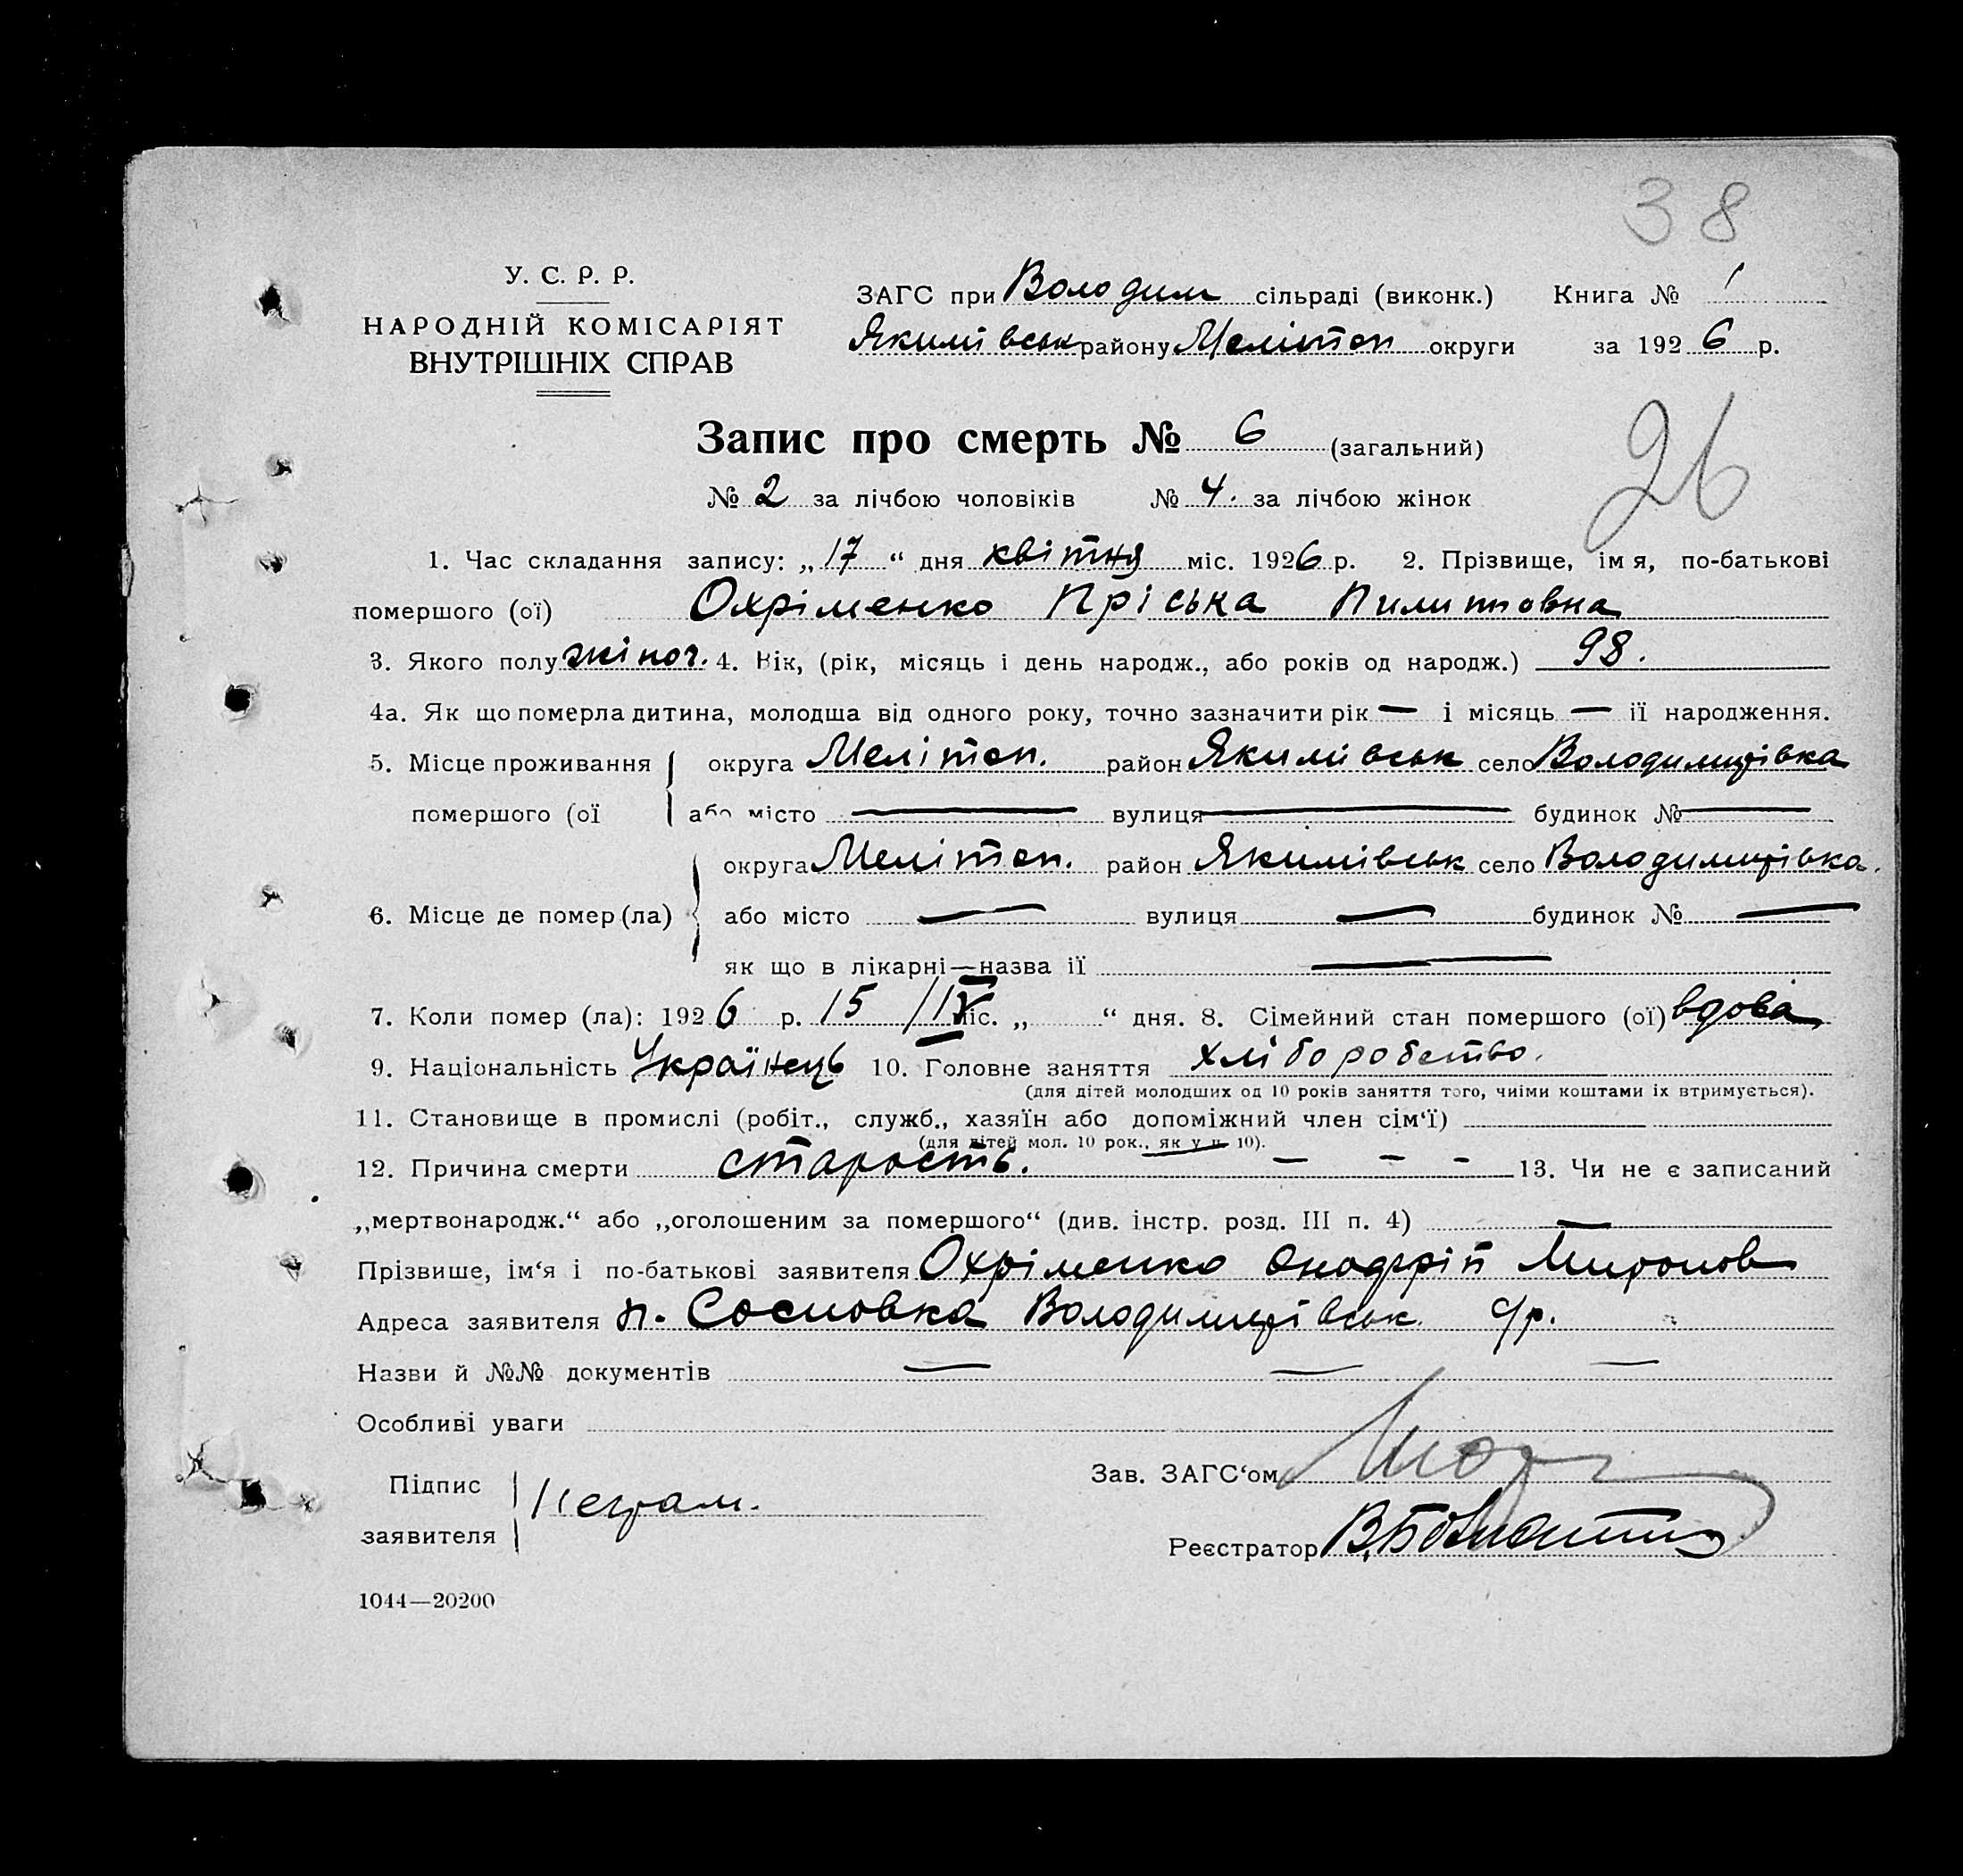 38
У. С. Р. Р.
НАРОДНІЙ КОМІСАРІЯТ
ВНУТРІШНІХ СПРАВ
ЗАГС при Володим сільраді (виконк.) Книга № 1
Якимівськ району Меліт оп округи за 1926 р.
Запис про смерть № 6 (загальний)
26
№ 2 за лічбою чоловіків № 4. за лічбою жінок
1. Час складання запису: „17“ дня квітня міс. 1926 р. 2. Прізвище, імя, по-батькові
помершого (ої) Охріменко Пріська Пилиповна
3. Якого полу жіноч. 4. Вік, (рік, місяць і день народж., або років од народж.) 98.
4а. Як що померла дитина, молодша від одного року, точно зазначити рік — і місяць — її народження.
5. Місце проживання округа Мелітоп. район Якимівськ село Володимирівка
помершого (ої або місто — вулиця — будинок № —
округа Мелітоп. район Якимівськ село Володимирівка.
6. Місце де помер (ла) або місто — вулиця — будинок № —
як що в лікарні—назва її —
7. Коли помер (ла): 1926 р. 15/IV міс. „ “ дня. 8. Сімейний стан помершого (ої) вдова
9. Національність Українець 10. Головне заняття хліборобство.
(для дітей молодших од 10 років заняття того, чиїми коштами їх втримується).
11. Становище в промислі (робіт., служб., хазяїн або допоміжний член сім‘ї)
(для дітей мол. 10 рок., як у п. 10).
12. Причина смерти старость. — — — 13. Чи не є записаний
„мертвонародж.“ або „оголошеним за помершого“ (див. інстр. розд. III п. 4) —
Прізвише, ім‘я і по-батькові заявителя Охріменко Онофрій Миронов
Адреса заявителя п. Сосновка Володимирівськ с/р.
Назви й №№ документів — — —
Особливі уваги
Підпис
заявителя Неграм.
Зав. ЗАГС‘ом
Реєстратор
1044—20200